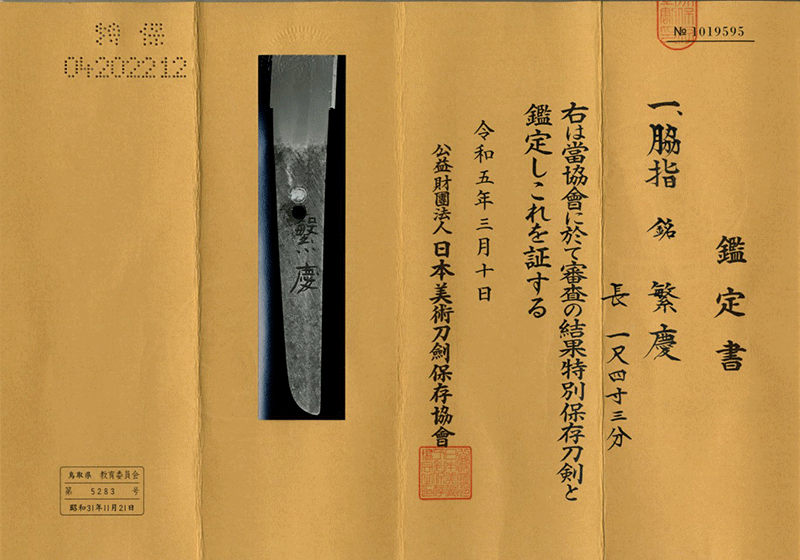 № 1019595
鑑定書
一、脇指 銘 繁慶
長 一尺四寸三分
右は當協會に於て審査の結果特別保存刀剣と
鑑定しこれを証する
令和五年三月十日
公益財團法人 日本美術刀劍保存協會
繁慶
特保
04202212
鳥取県 教育委員会
第 5283 号
昭和31年11月21日